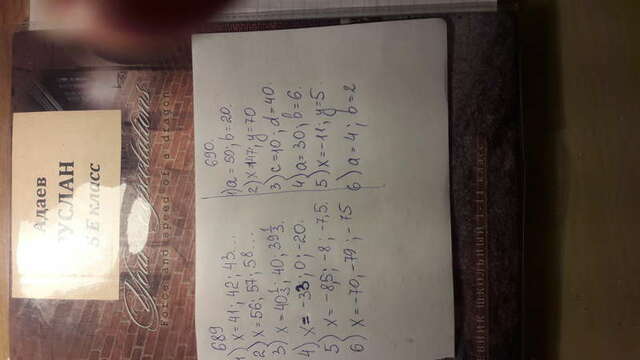 Адаев
РУСЛАН
5 Е класс
Your expectations
Force and speed of a dragon
689
1) x = 41; 42; 43...
2) x = 56; 57; 58...
3) x = 40 1/3; 40; 39 1/3.
4) x = -33; 0; -20.
5) x = -8,5; -8; -7,5.
6) x = -70; -79; -75
690.
1) a = 50; b = 20.
2) x = 147; y = 70
3) c = 10; d = 40.
4) a = 30; b = 6.
5) x = -11; y = 5
6) a = 4; b = 2
ДНЕВНИК ШКОЛЬНЫЙ 1-11 класс